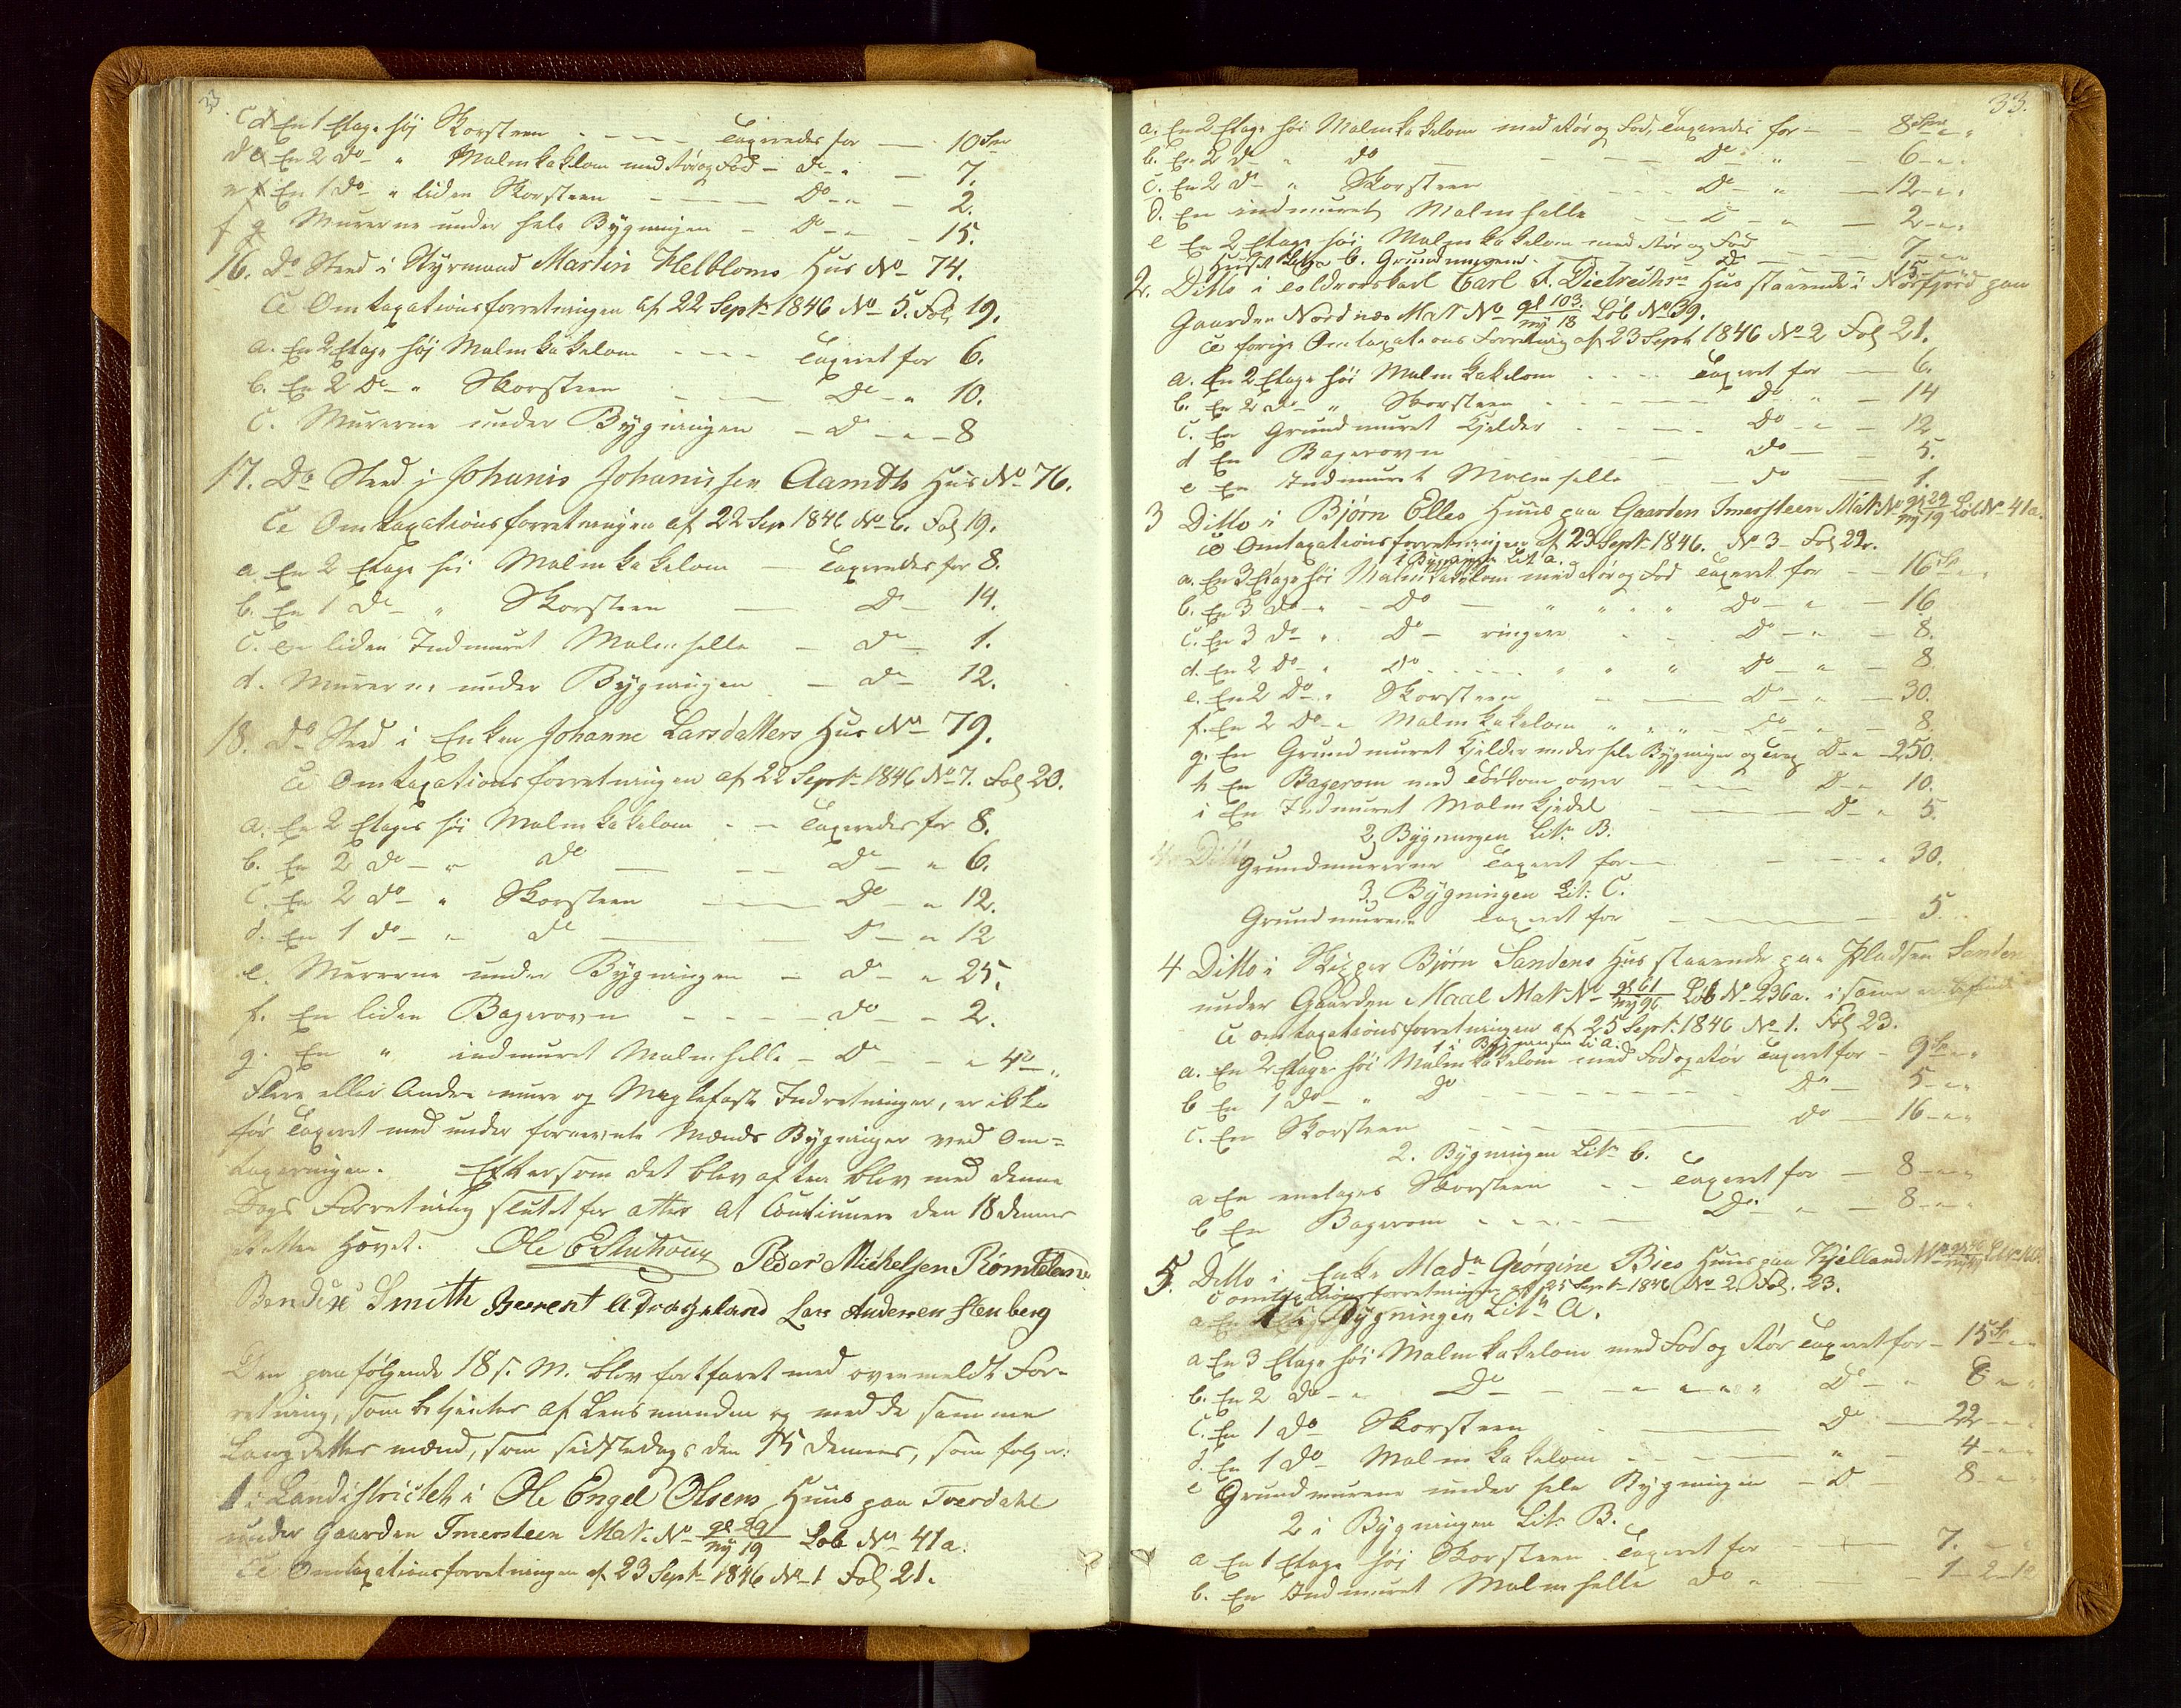 c d En 1 Etage høj Skorsteen - - - - Taxeredes for — 10 Spe
d e En 2 Do - " Malmkakelovn med Rør og Fod - do - " — 7.
e f En 1 Do - " liden Skorsteen - - - - Do - " — 2.
f g Murerne under hele Bygningen - Do - - 15.
16. Do Sted i Styrmand Martin Helbloms Hus No 74.
Omtaxationsforretningen af 22 Sept: 1846 No 5. Fol 19.
a. En 2 Etage høj Malmkakelovn - - - Taxeret for 6.
b. En 2 Do - " Skorsteen - - - Do - " 10.
c. Murerne under Bygningen - Do - " - 8
17. Do Sted i Johanis Johanissen Aamdts Hus No 76.
Omtaxationsforretningen af 22 Sep 1846 No 6. Fol 19.
a. En 2 Etage høi Malmkakelovn — Taxeredes for 8.
b. En 1 Do - " Skorsteen — Do - 14.
c. En liden Indmuret Malmhelle - Do - 1.
d. Murerne under Bygningen - Do - 12.
18. Do Sted i Enken Johanne Larsdatters Hus No 79.
Omtaxationsforretningen af 22 Sept: 1846 No 7. Fol 20.
a. En 2 Etages høi Malmkakelovn - - Taxeredes for 8.
b. En 2 Do - " Do — - - Do - " 6.
c. En 2 Do - " Skorsteen — Do - " 12.
d. En 1 Do - " Do — Do - " 12
e. Murerne under Bygningen - Do " 25.
f. En liden Bagerovn - - - - Do - - 2.
g. En " indmuret Malmhelle - Do - - " 4 -
Flere eller Andre mure og Muurfaste Indretninger, er ikke
før Taxeret med under fornevnte Mænds Bygninger ved Om=
taxeringen. Eftersom det blev aften blev med denne
Dags Forretning sluttet for atter at Continuere den 18 dennes
Retten Hævet. Ole E Peder Michelsen
Bendix Smith Berent A Drageland Lars Andersen Stenberg
Den paafølgende 18 s. M. blev fortfaret med ovenmeldt For-
retning, som betjentes af Lensmanden og med de samme
Laugrettes mænd, som sidstedags den 15 dennes, som følger:
1 i Landistrictet i Ole Engel Olsens Huus paa Tverdahl
under Gaarden Imersteen Mat. No gl 29/ny 19 Løb No 41a.
Omtaxationsforretningen af 23 Sept: 1846 No 1 Fol 21.
33.
a. En 2 Etage høi Malmkakelovn med Rør og Fod, Taxeredes for - - 8 Spe " "
b. En 2 Do " Do - - - Do " - 6 - " "
c. En 2 Do - " Skorsteen - - - Do - " - 12 - " "
d. En indmuret Malmhelle - - Do - " - 2 - " "
e En 2 Etage høi Malmkakelovn med Rør og Fod 7 - -
Huset Litr. b. Grundmurene - - - Do - 15 - -
2. Ditto i Carl F. Dietrichs Hus staaende i Norfjord paa
Gaarden Nordnæs Mat No gl 103./ny 18 Løb No 39.
forige Omtaxations Forretning af 23 Sept 1846 No 2 Fol 21.
a. En 2 Etage høi Malmkakelovn - - - - Taxeret for — 6.
b. En 2 Do - " Skorsteen - - - - Do " - 14
c. En Grundmuret Kjelder - - - - Do - " - 12
d En Bagerovn — Do — 5.
e En Indmuret Malmhelle — Do — 1.
3 Ditto i Bjørn Elles Huus paa Gaarden Imersteen Mat: No gl 29/ny 19 Løb No 41a.
Omtaxationsforretningen af 23 Sept: 1846. No 3 - Fol 22.
1 Bygningen Lit a.
a. En 3 Etage høi Malmkakelovn med Rør og Fod Taxeret for — 16 Sp " "
b. En 3 Do - " - Do — " " " " Do - " - 16.
c. En 3 Do " Do - ringere - - Do - " - 8.
d. En 2 Do - " Do - - - - " " " Do - " - 8.
e. En 2 Do - " Skorsteen - - Do - " - 30.
f. En 2 Do - " Malmkakelovn " " " - Do - " - 8
g. En Grundmuret Kjelder under hele Bygningen og Do - " - 250.
h En Bagerovn med over - - - Do - " 10.
i En Indmuret Malmkjedel — Do - " 5.
2, Bygningen Litr B.
Grundmurerne Taxeret for — - - - " 30.
3, Bygningen Lit: C.
Grundmurene Taxeret for — 5.
4 Ditto i Skipper Bjørn Sandens Hus staaende paa Pladsen Sanden
under Gaarden Maal Mat No gl 61/ny 96 Løb No 236a. i
omtaxationsforretningen af 25 Sept: 1846 No 1. Fol 23.
1 i Bygningen Lit A.
a. En 2 Etage høi Malmkakelovn med Fod og Rør Taxeret for - 9 Sp " "
b En 1 Do - " Do - - - - - - Do - 5 - " "
c. En Skorsteen - - - Do - 16 - " "
2. Bygningen Litr b.
a En enetages Skorsteen - - Taxeret for — 8 - " "
b En Bagerovn - - - - - Do: " - 8 - " "
5. Ditto i Enke Madm Georgine Bies Huus paa Kjelland
omtaxationsforretningen af 25 Sept: 1846 No 2. Fol. 23.
1 i Bygningen Litr A.
a En 3 Etage høi Malmkakelovn med Fod og Rør Taxeret for - 15 Sp " "
b. En 2 Do - " Do - - " " " " Do - " 8 - "
c. En 1 Do Skorsteen - - - Do - 22 - "
d. En 1 Do - Malmkakelovn - - - " - 4 - "
e Grundmurene under hele Bygningen - Do - 8 - "
2 i Bygningen Litr B.
a En 1 Etage høj Skorsteen Taxeret for - - - 7. - "
b. En Indmuret Malmhelle Do " - - 1 - 2 - 12